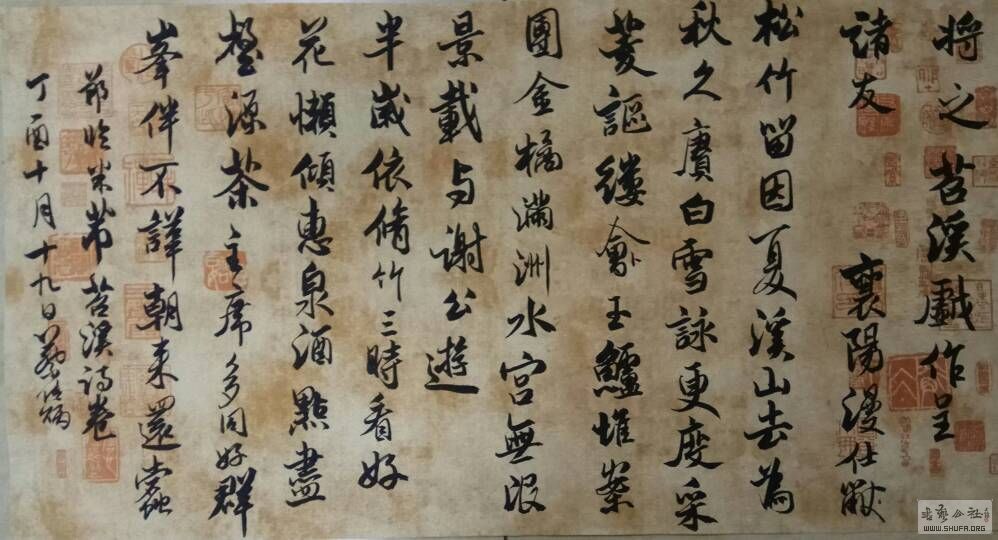 将之苕溪戲作呈
諸友 襄陽漫仕黻
松竹留因夏溪山去為
秋久賡白雪詠更度采
菱謳縷會玉鱸堆案
團金橘滿洲水宮無限
景載与謝公遊
半歲依脩竹三時看好
花懶傾惠泉酒點盡
壑源茶主席多同好群
峯伴不譁朝来還蠹
節临米芾苕溪詩卷
丁酉十月十九日
書藝公社
WWW.SHUFA.ORG